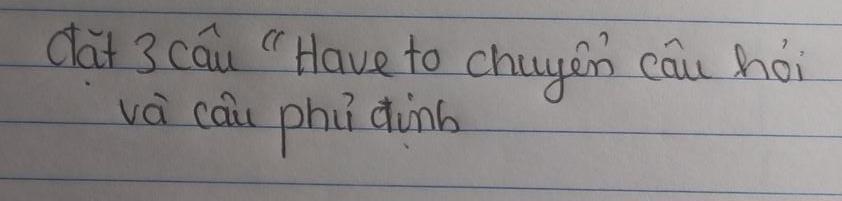 đặt 3 câu "Have to chuyển câu hỏi
và câu phủ định